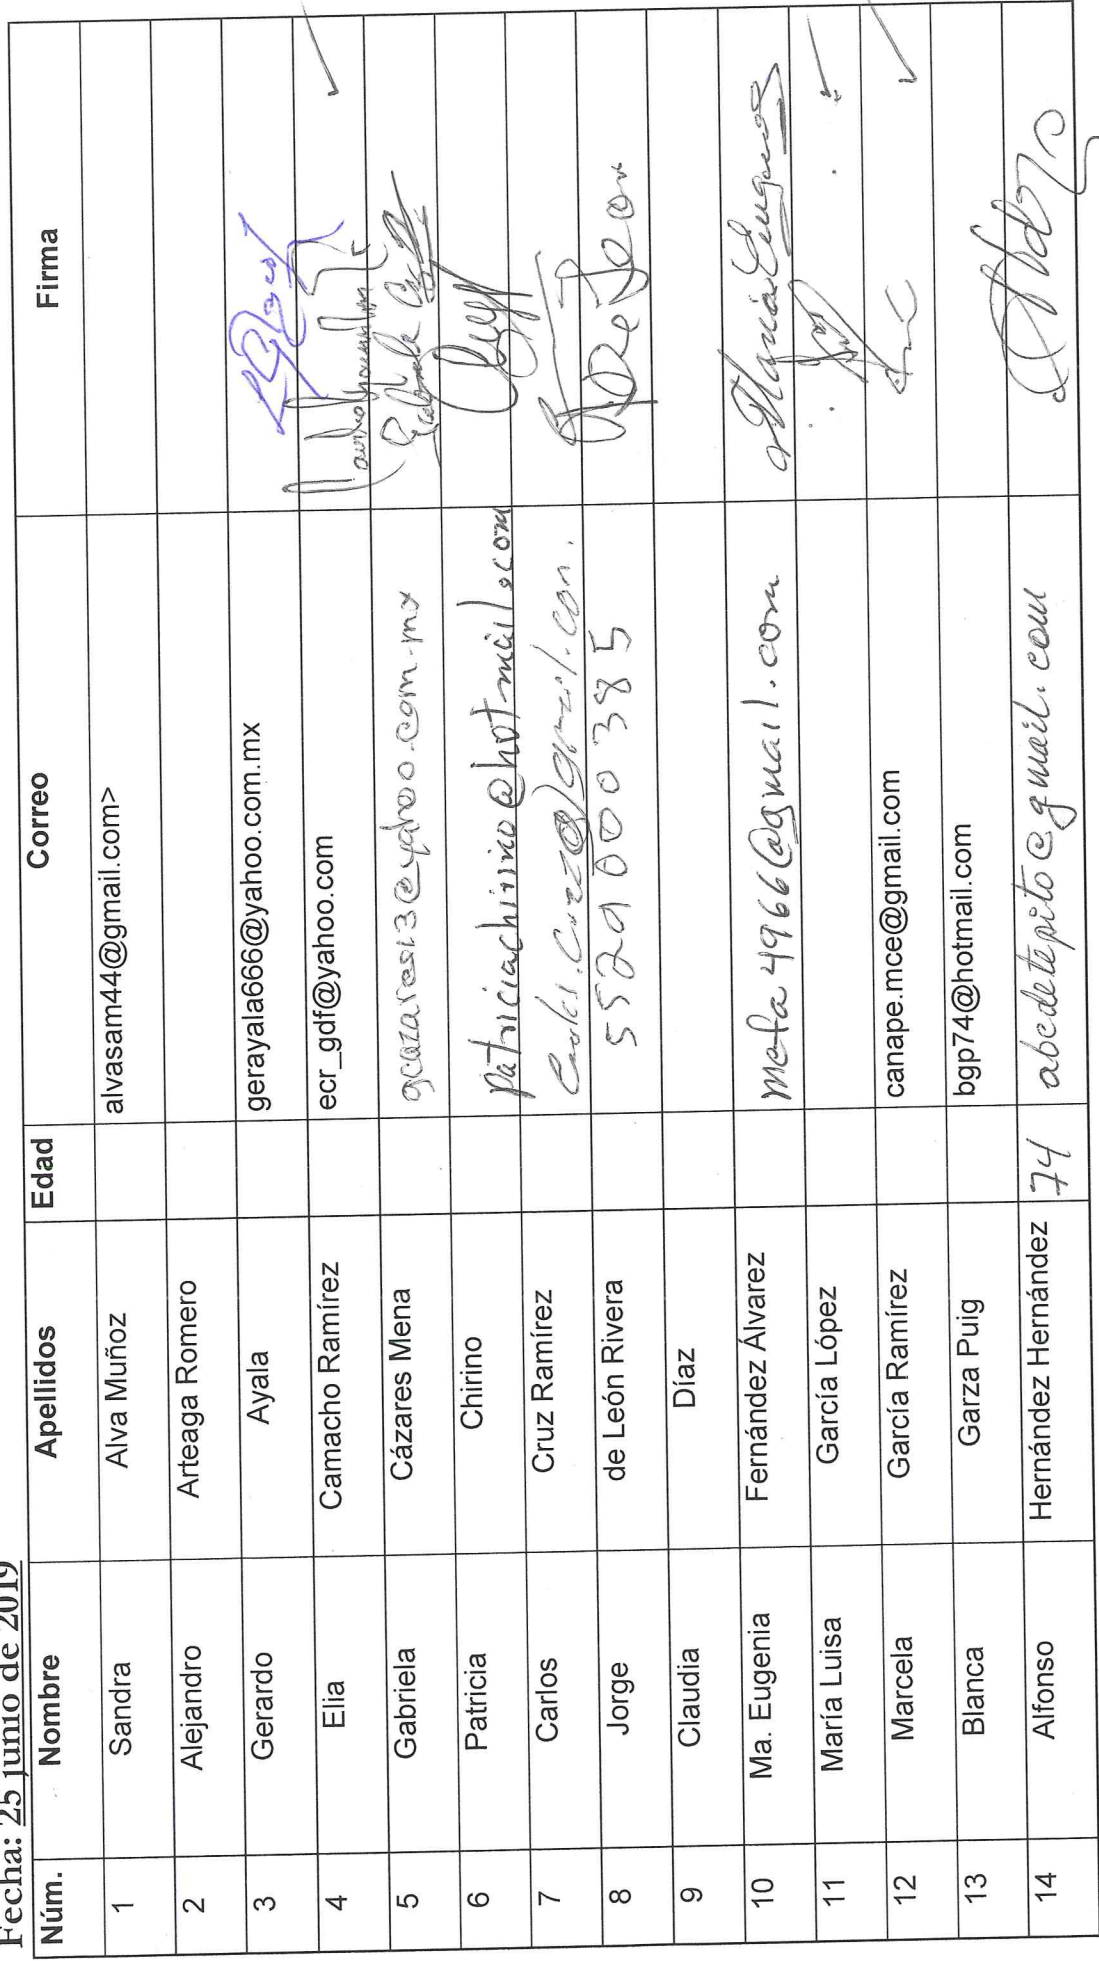 Fecha: 25 junio de 2019
Núm. Nombre Apellidos Edad Correo Firma
1 Sandra Alva Muñoz alvasam44@gmail.com>
2 Alejandro Arteaga Romero
3 Gerardo Ayala gerayala666@yahoo.com.mx
4 Elia Camacho Ramírez ecr_gdf@yahoo.com
5 Gabriela Cázares Mena
6 Patricia Chirino Patriciachirino@hotmail.com
7 Carlos Cruz Ramírez
8 Jorge de León Rivera 5529000385 De Leon
9 Claudia Díaz
10 Ma. Eugenia Fernández Álvarez mafa4966@gmail.com Maria Eugenia
11 María Luisa García López
12 Marcela García Ramírez canape.mce@gmail.com
13 Blanca Garza Puig bgp74@hotmail.com
14 Alfonso Hernández Hernández 74 abcdetepito@gmail.com